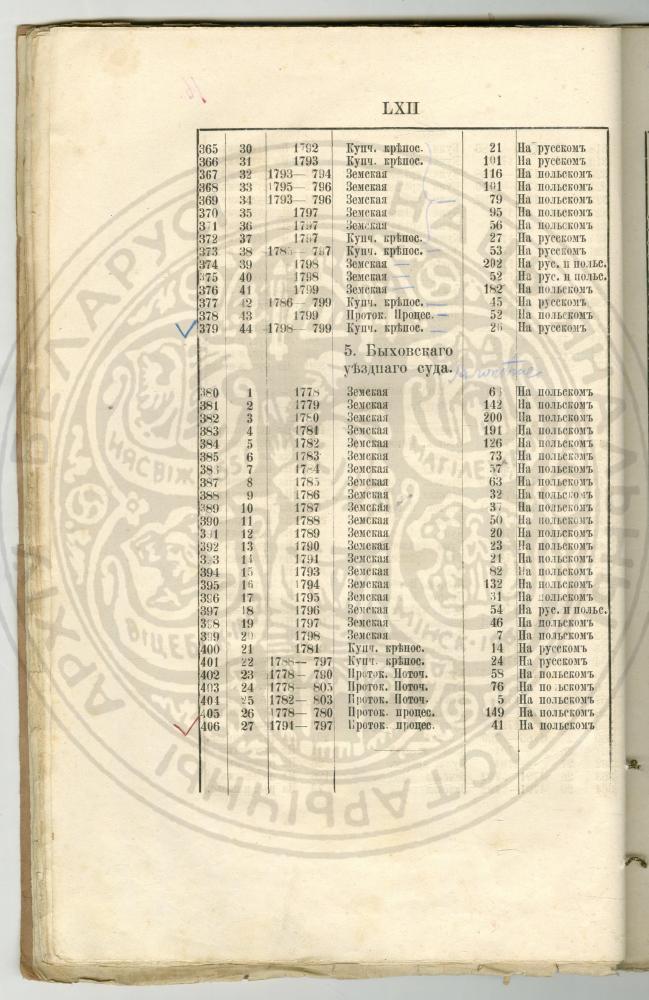 LXII
365 30 1792 Купч. крѣпос. 21 На русскомъ
366 31 1793 Купч. крѣпос. 101 На русскомъ
367 32 1793— 794 Земская 116 На польскомъ
368 33 1795— 796 Земская 101 На польскомъ
369 34 1793— 796 Земская 79 На польскомъ
370 35 1797 Земская 95 На польскомъ
371 36 1797 Земская 56 На польскомъ
372 37 1797 Купч. крѣпос. 27 На русскомъ
373 38 1785— 797 Купч. крѣпос. 53 На русскомъ
374 39 1798 Земская 202 На рус. и польс.
375 40 1798 Земская 52 На рус. и польс.
376 41 1799 Земская 182 На польскомъ
377 42 1786— 799 Купч. крѣпос. 45 На русскомъ
378 43 1799 Проток. Процес. 52 На польскомъ
379 44 1798— 799 Купч. крѣпос. 26 На русскомъ
5. Быховскаго
уѣзднаго суда.
380 1 1778 Земская На польскомъ
381 2 1779 Земская 142 На польскомъ
382 3 1780 Земская 200 На польскомъ
383 4 1781 Земская 191 На польскомъ
384 5 1782 Земская 126 На польскомъ
385 6 1783 Земская 73 На польскомъ
386 7 1784 Земская 57 На польскомъ
387 8 1785 Земская 63 На польскомъ
388 9 1786 Земская 32 На польскомъ
389 10 1787 Земская 37 На польскомъ
390 11 1788 Земская 50 На польскомъ
391 12 1789 Земская 20 На польскомъ
392 13 1790 Земская 23 На польскомъ
393 14 1791 Земская 21 На польскомъ
394 15 1793 Земская 82 На польскомъ
395 16 1794 Земская 132 На польскомъ
396 17 1795 Земская 31 На польскомъ
397 18 1796 Земская 54 На рус. и польс.
398 19 1797 Земская 46 На польскомъ
399 20 1798 Земская 7 На польскомъ
400 21 1781 Купч. крѣпос. 14 На русскомъ
401 22 1788— 797 Купч. крѣпос. 24 На русскомъ
402 23 1778— 790 Проток. Поточ. 58 На польскомъ
403 24 1778— 805 Проток. Поточ. 76 На польскомъ
404 25 1782— 803 Проток. Поточ. 5 На польскомъ
405 26 1778— 780 Проток. процес. 149 На польскомъ
406 27 1791— 797 Проток. процес. 41 На польскомъ